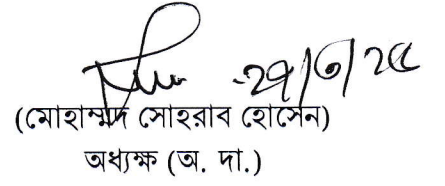 ২৭/৩/২৫
(মোহাম্মদ সোহরাব হোসেন)
অধ্যক্ষ (অ. দা.)